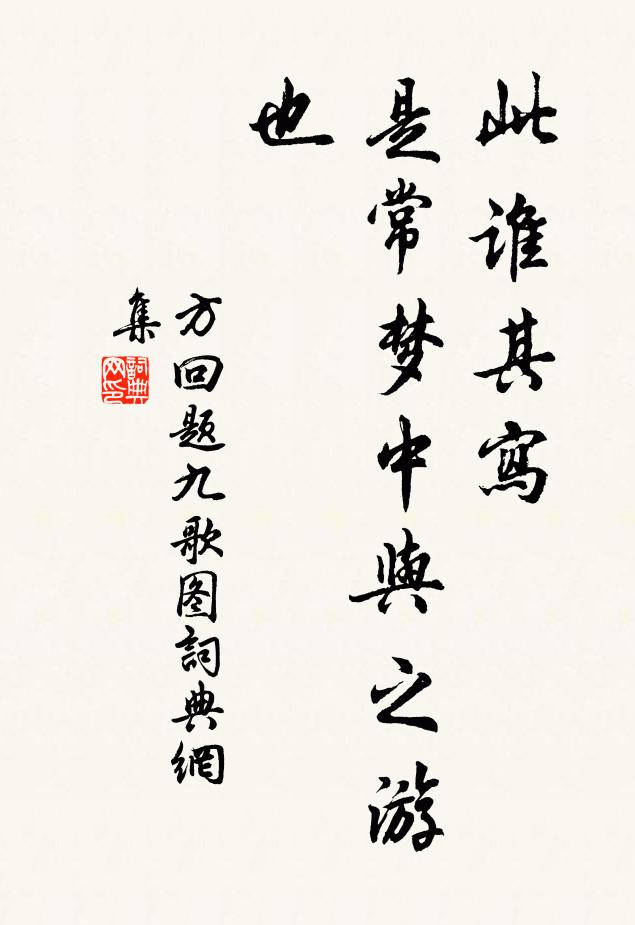 此谁其寫
是常梦中與之游
也
方回题九歌图詞典網
集
詞典
网印